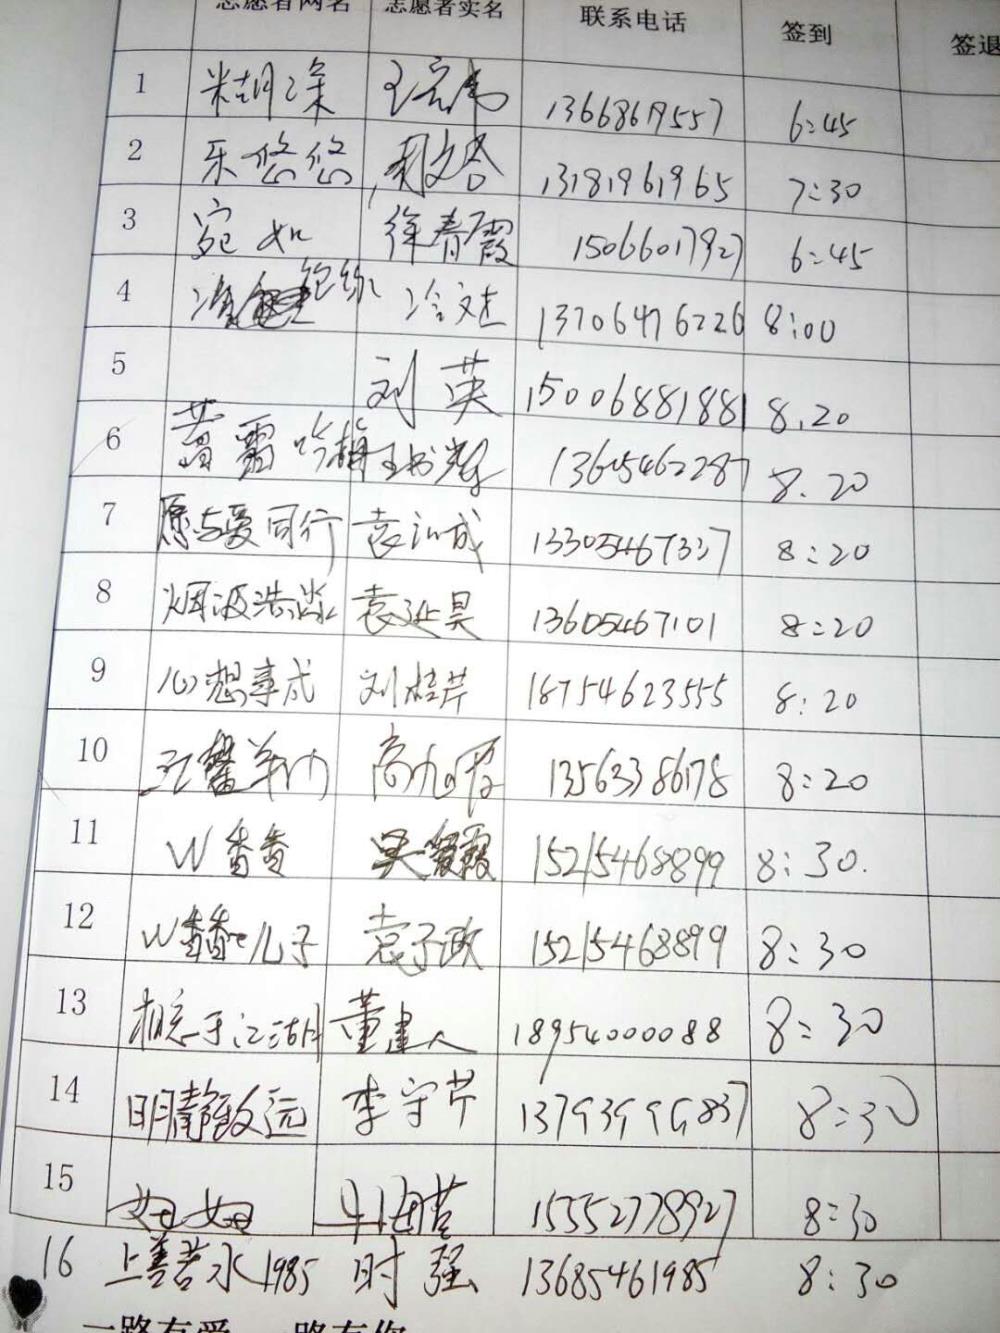 志愿者网名 志愿者实名 联系电话 签到 签退
1 糊涂 王宏伟 13668619557 6:45
2 乐悠悠 13181961965 7:30
3 宛如 徐春霞 15066017927 6:45
4 冷文 13706476226 8:00
5 刘英 15006881881 8.20
6 蔷雷吟梅 王书 13605462287 8.20
7 愿与爱同行 袁汇成 13305467337 8:20
8 烟波浩淼 袁延昊 13605467101 8:20
9 心想事成 刘桂芹 18754623555 8:20
10 高九 13563386178 8:20
11 W香香 吴爱霞 15215468899 8:30.
12 W香香儿子 袁子政 15215468899 8:30
13 相忘于江湖 董建人 18954000088 8:30
14 明静致远 李守芹 13793996837 8:30
15 15552778927 8:30
16 上善若水1985 时强 13685461985 8:30
一路有爱 一路有你